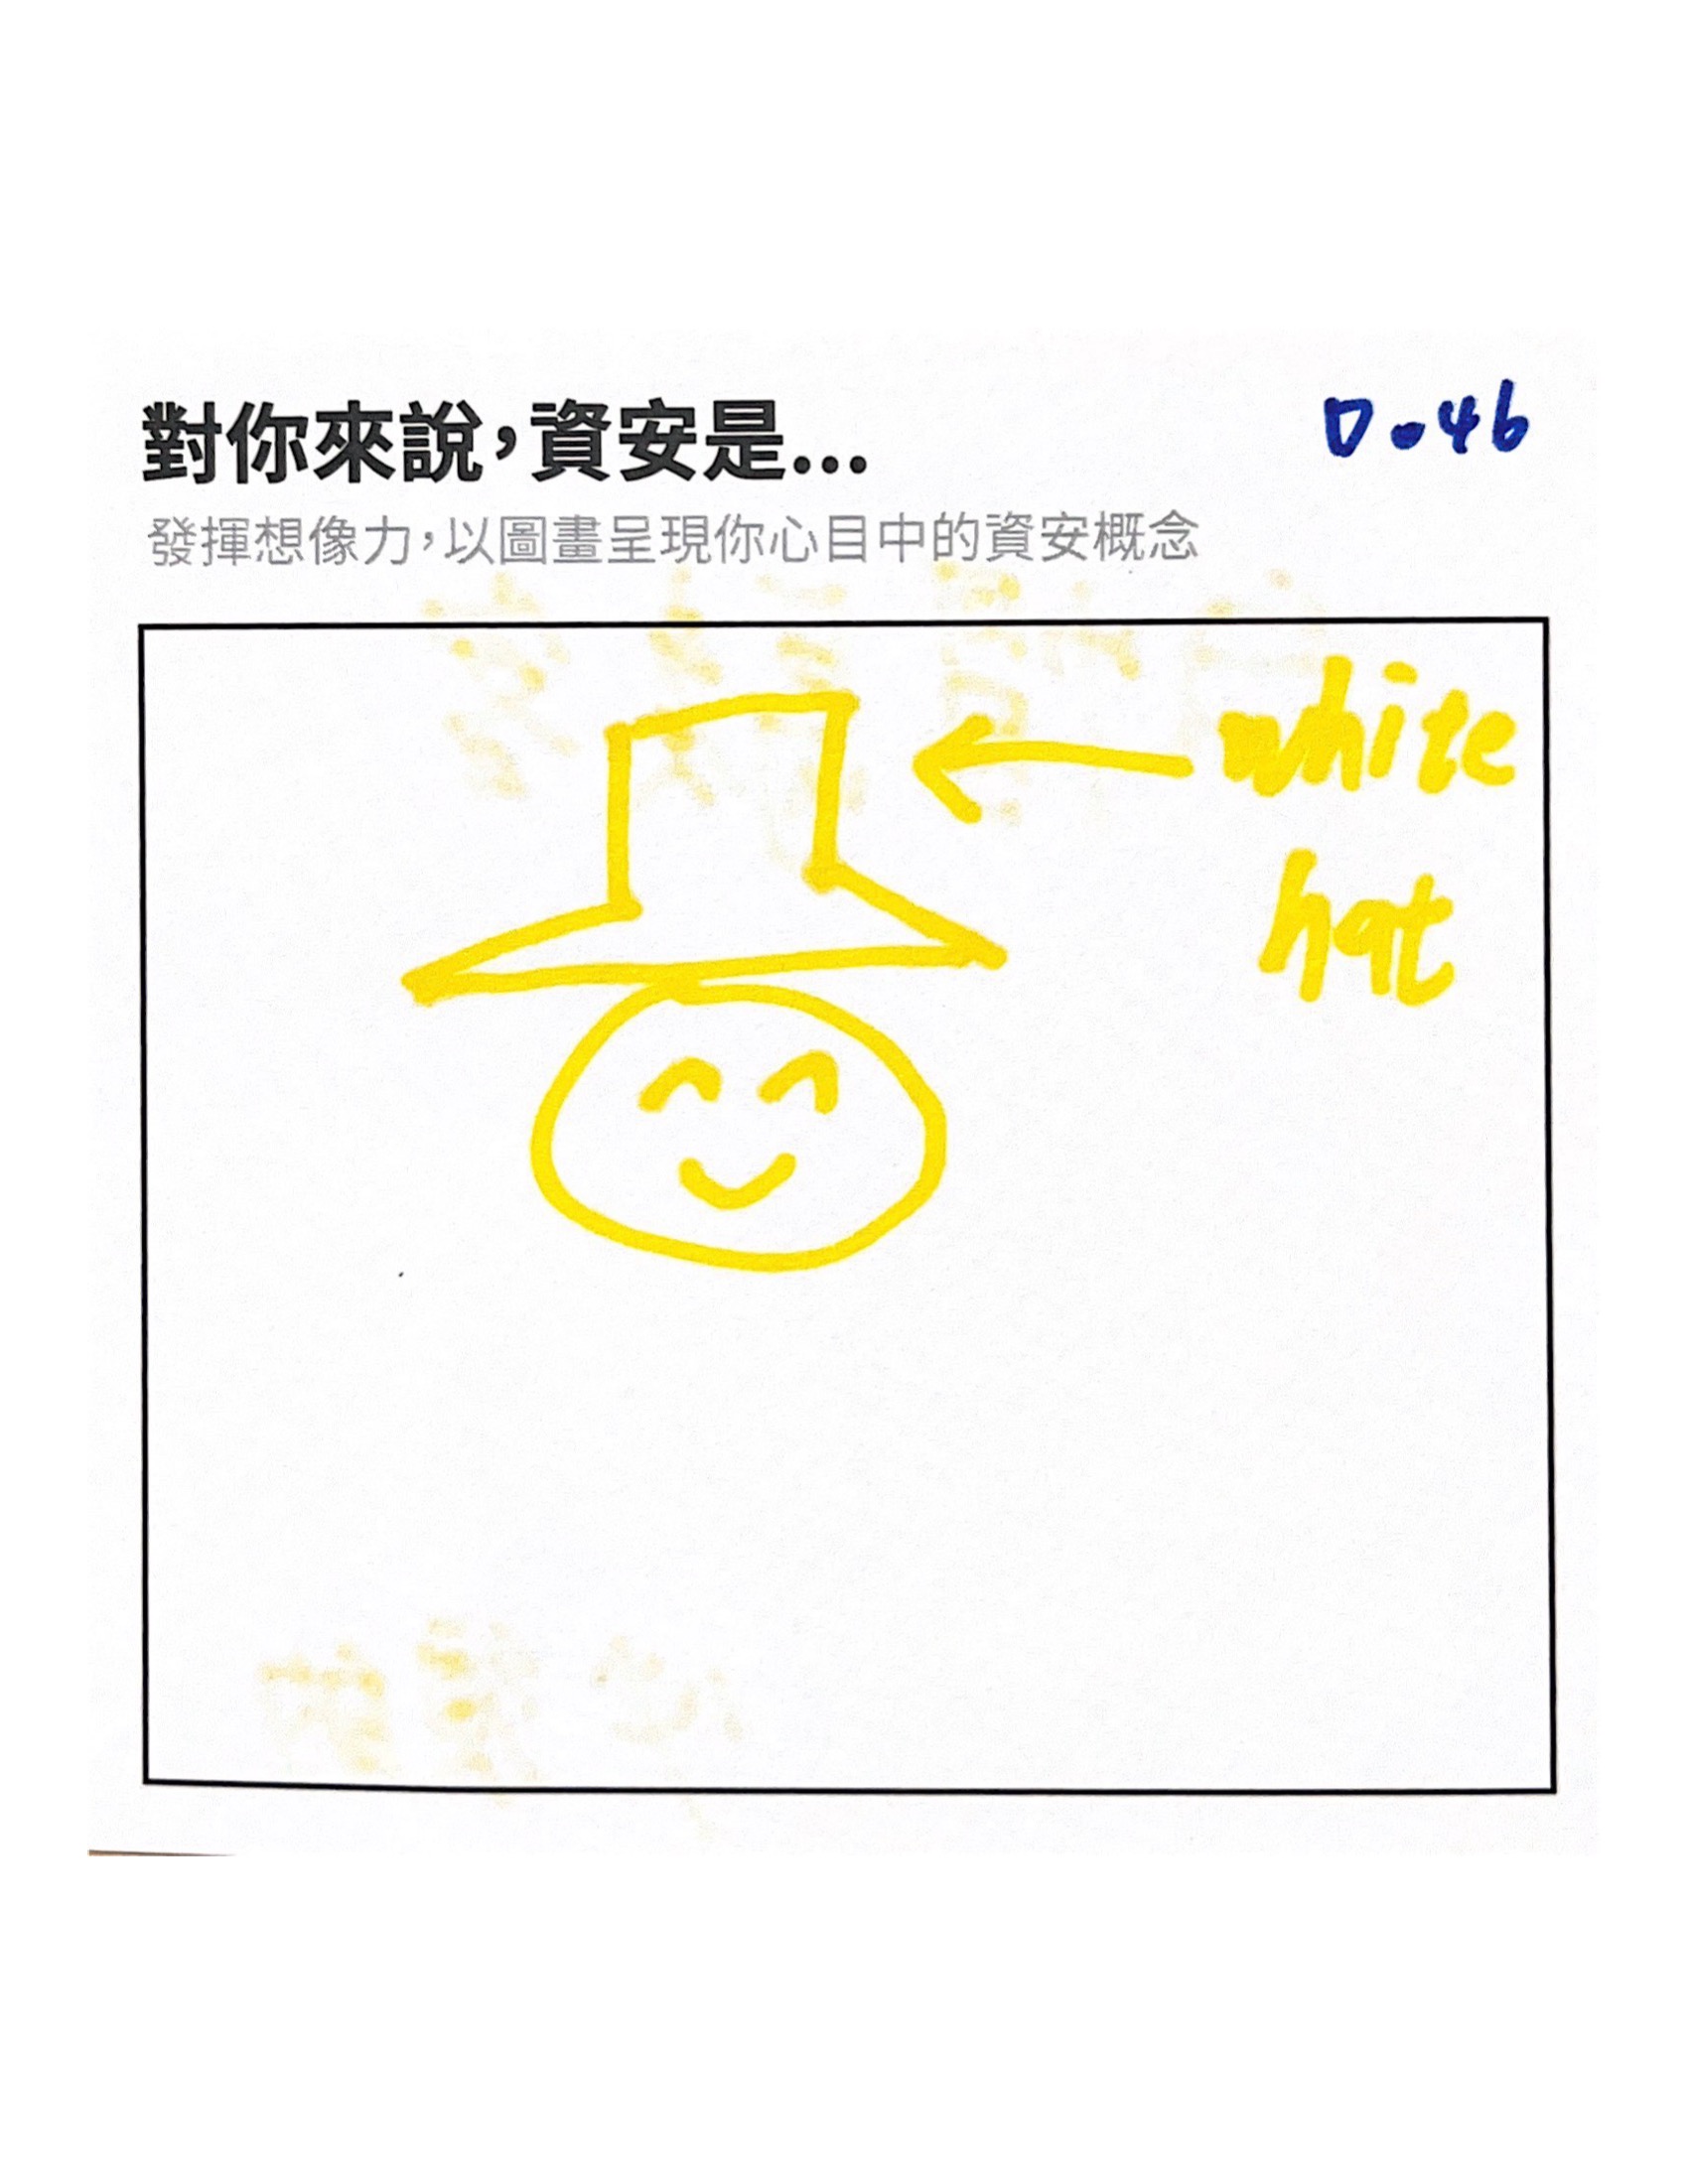 對你來說，資安是...
D-46
發揮想像力，以圖畫呈現你心目中的資安概念
white
hat